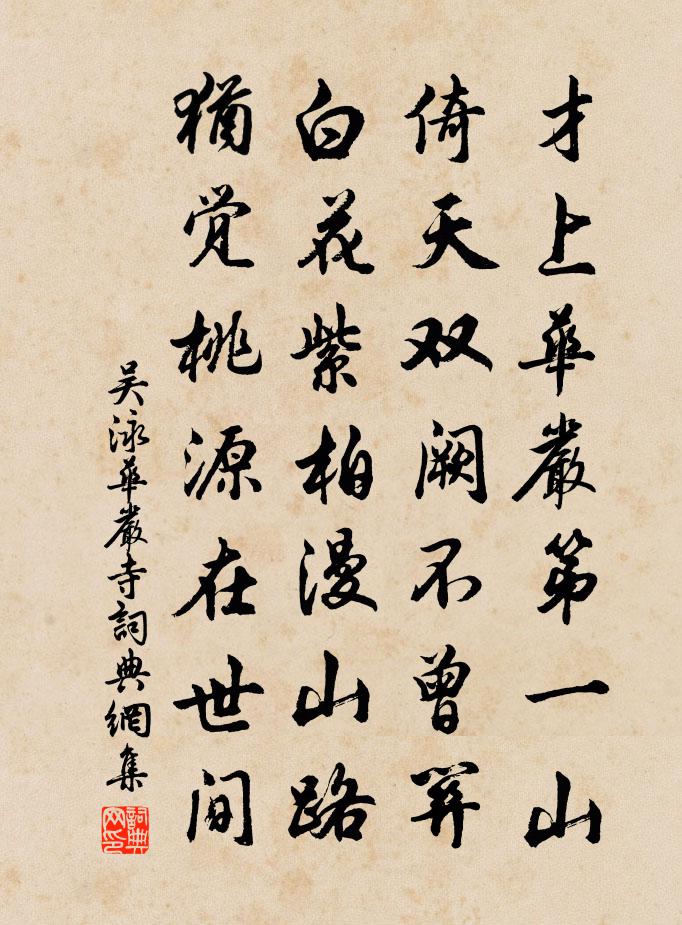 才上華嚴第一山
倚天双阙不曾関
白花紫柏漫山路
猶觉桃源在世间
吴泳華嚴寺詞典網集
詞典网印